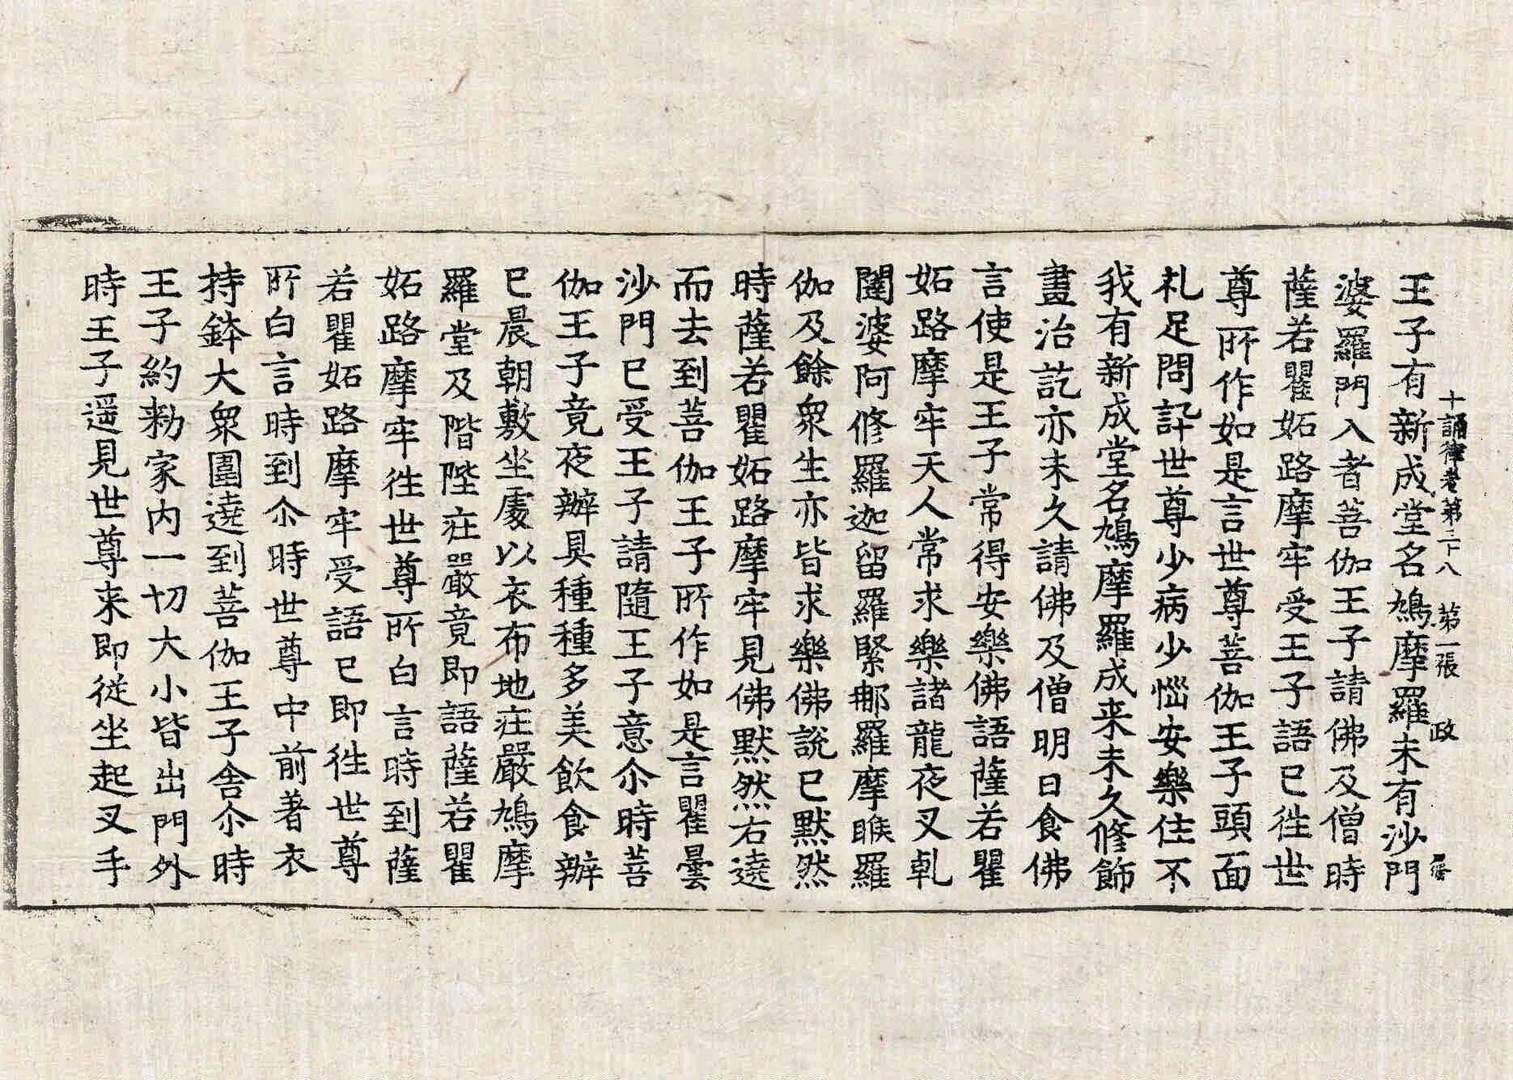 十誦律卷第三十八 第一張 政
王子有新成堂名鳩摩羅未有沙門
婆羅門入者菩伽王子請佛及僧時
薩若瞿妬路摩牢受王子語已往世
尊所作如是言世尊菩伽王子頭面
礼足問訊世尊少病少惱安樂住不
我有新成堂名鳩摩羅成来未久修飾
畫治訖亦未久請佛及僧明日食佛
言使是王子常得安樂佛語薩若瞿
妬路摩牢天人常求樂諸龍夜叉乹
闥婆阿修羅迦留羅緊那羅摩睺羅
伽及餘衆生亦皆求樂佛說已默然
時薩若瞿妬路摩牢見佛默然右遶
而去到菩伽王子所作如是言瞿曇
沙門已受王子請隨王子意尒時菩
伽王子竟夜辦具種種多美飲食辦
已晨朝敷坐處以衣布地庄嚴鳩摩
羅堂及階陛庄嚴竟即語薩若瞿
妬路摩牢往世尊所白言時到薩
若瞿妬路摩牢受語已即往世尊
所白言時到尒時世尊中前著衣
持鉢大衆圍遶到菩伽王子舍尒時
王子約勑家內一切大小皆出門外
時王子遥見世尊来即從坐起叉手